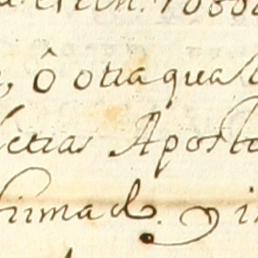 ô otra qual
letras Aposto
firmad. y i